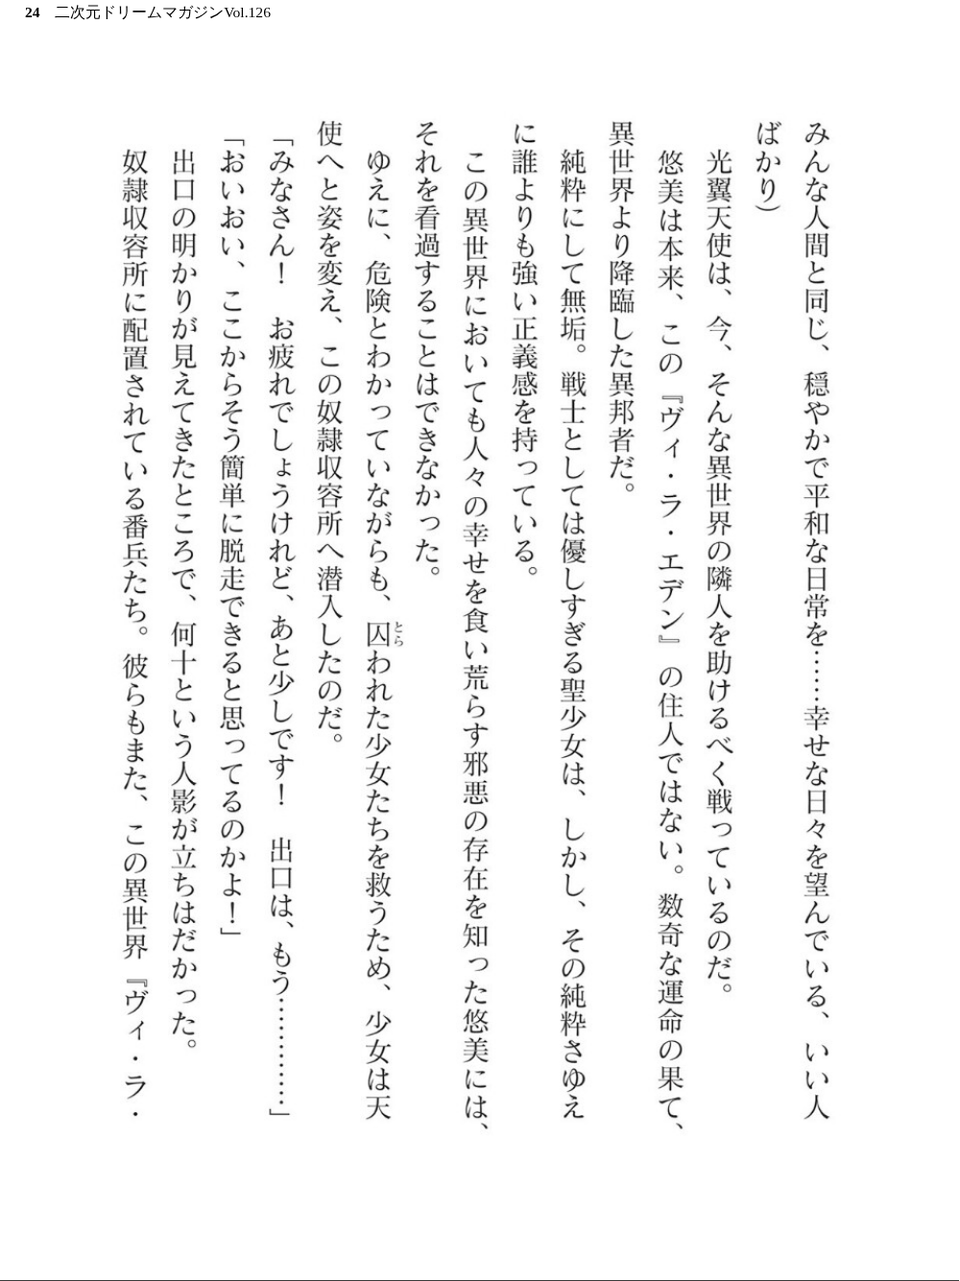 24 二次元ドリームマガジンVol.126
みんな人間と同じ、穏やかで平和な日常を……幸せな日々を望んでいる、いい人
ばかり）
　光翼天使は、今、そんな異世界の隣人を助けるべく戦っているのだ。
　悠美は本来、この『ヴィ・ラ・エデン』の住人ではない。数奇な運命の果て、
異世界より降臨した異邦者だ。
　純粋にして無垢。戦士としては優しすぎる聖少女は、しかし、その純粋さゆえ
に誰よりも強い正義感を持っている。
　この異世界においても人々の幸せを食い荒らす邪悪の存在を知った悠美には、
それを看過することはできなかった。
　ゆえに、危険とわかっていながらも、囚われた少女たちを救うため、少女は天
とら
使へと姿を変え、この奴隷収容所へ潜入したのだ。
「みなさん！　お疲れでしょうけれど、あと少しです！　出口は、もう…………」
「おいおい、ここからそう簡単に脱走できると思ってるのかよ！」
　出口の明かりが見えてきたところで、何十という人影が立ちはだかった。
　奴隷収容所に配置されている番兵たち。彼らもまた、この異世界『ヴィ・ラ・